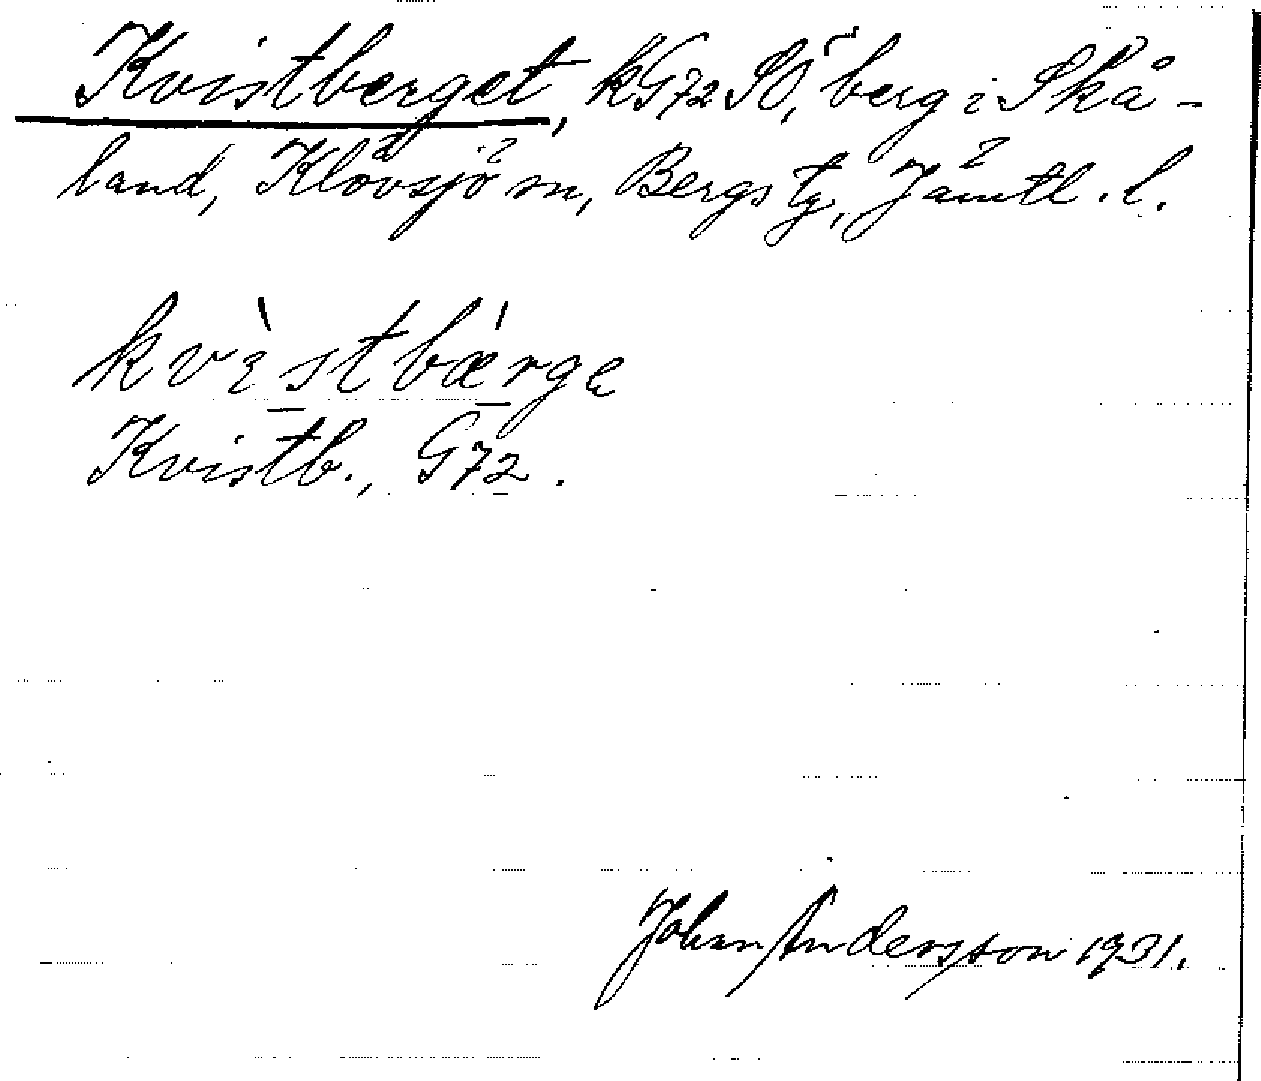 Kvistberget, kG72SÖ, berg i Skå-
land, Klövsjö sn, Bergs tg, Jämtl. l.
kvèstbǽrge
Kvistb., G72.
Johan Andersson 1931.